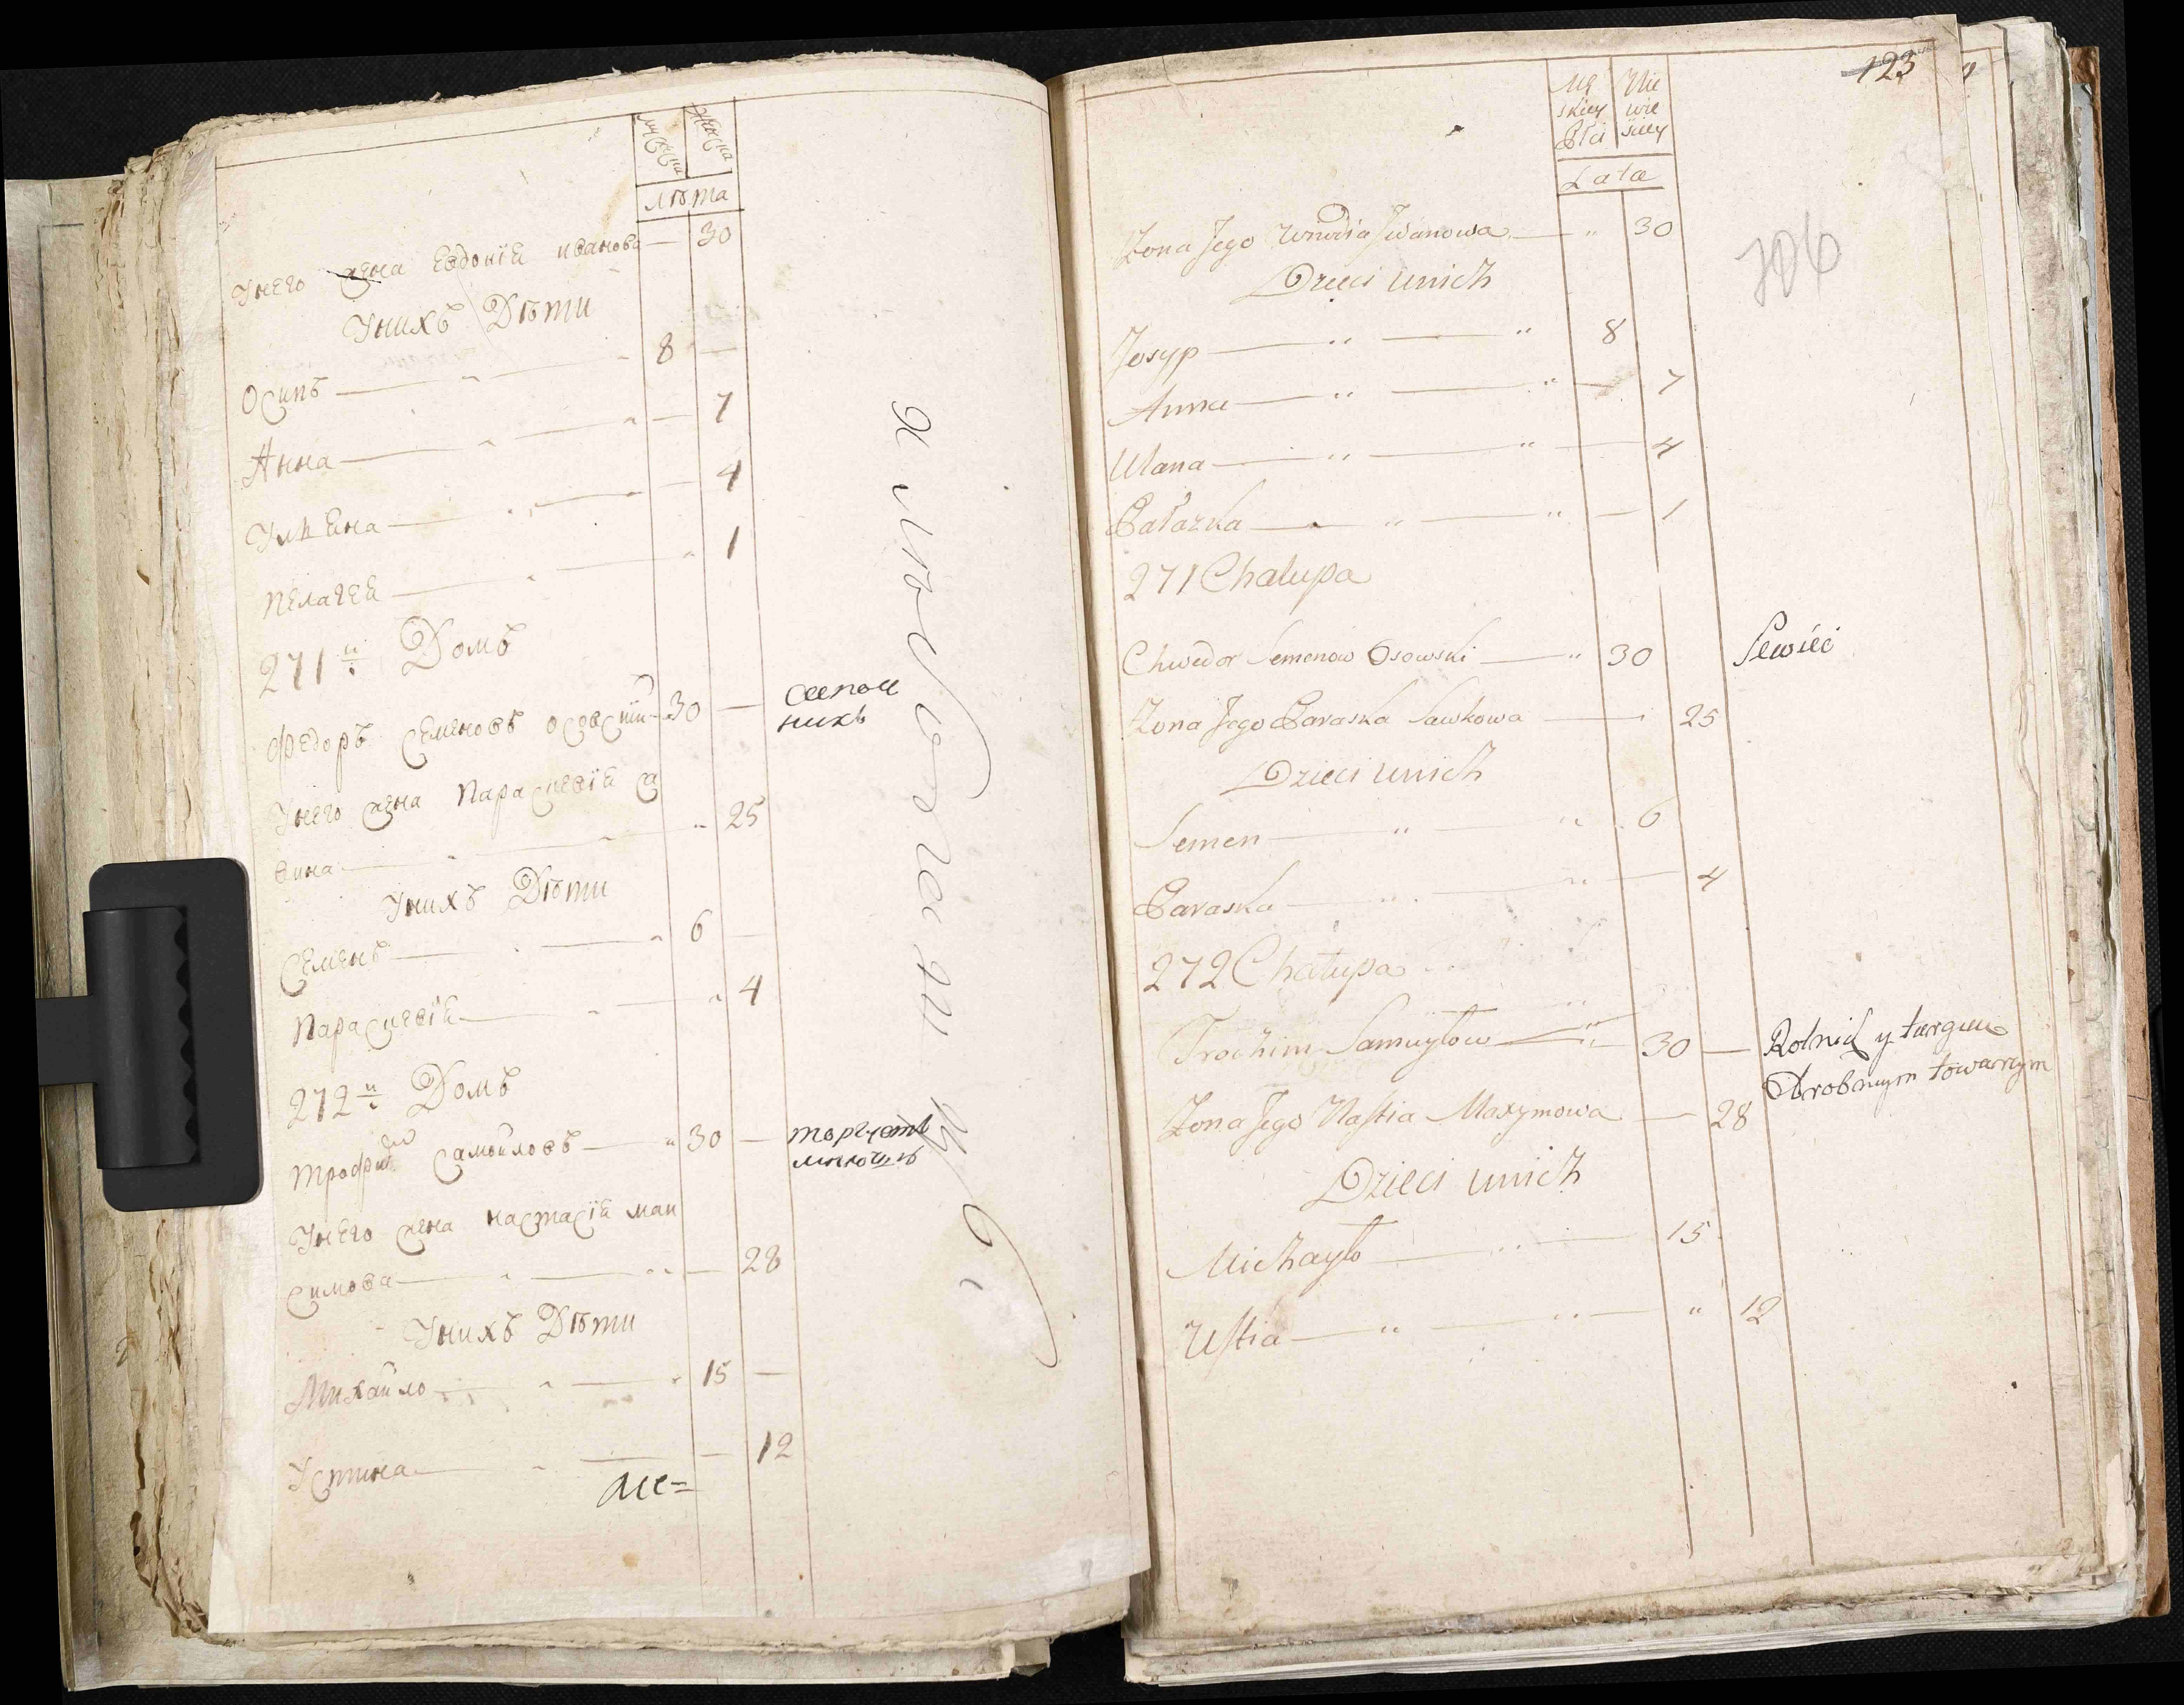 мужеска
женска
лѣта
Унего жена Евдокія иванова — 30
Унихъ Дѣти
Осипъ — 8 —
Анна — 7
Ульяна — 4
Пелагея — 1
271й Домъ
Федоръ Семеновъ осовскій 30 —
сапож
никъ
Унего жена Параскевія са
вина — 25
Унихъ Дѣти
Семенъ — 6 —
Параскевія — 4
272й Домъ
Трофимъ Самойловъ — 30 —
торгуетъ
мелочью
Унего жена настасія мак
симова — 28
Унихъ Дѣти
Михайло — 15 —
Устина — 12
123
706
Mę
skiey
Płci
Nie
wie
sciey
Lata
Żona Jego Iwanowa — 30
Dzieci unich
Josyp — 8
Anna — 7
Ulana — 4
Pałazka — 1
271 Chałupa
Chwedor Semenow Osowski — 30 Szwiec
Żona Jego Paraska Sawkowa — 25
Dzieci unich
Semen — 6
Paraska — 4
272 Chałupa
Trochim Samuyłow — 30 — Rolnik y targuie
drobnym towarem
Żona Jego Nastia Maxymowa — 28
Dzieci unich
Michayło — 15
Ustia — 12